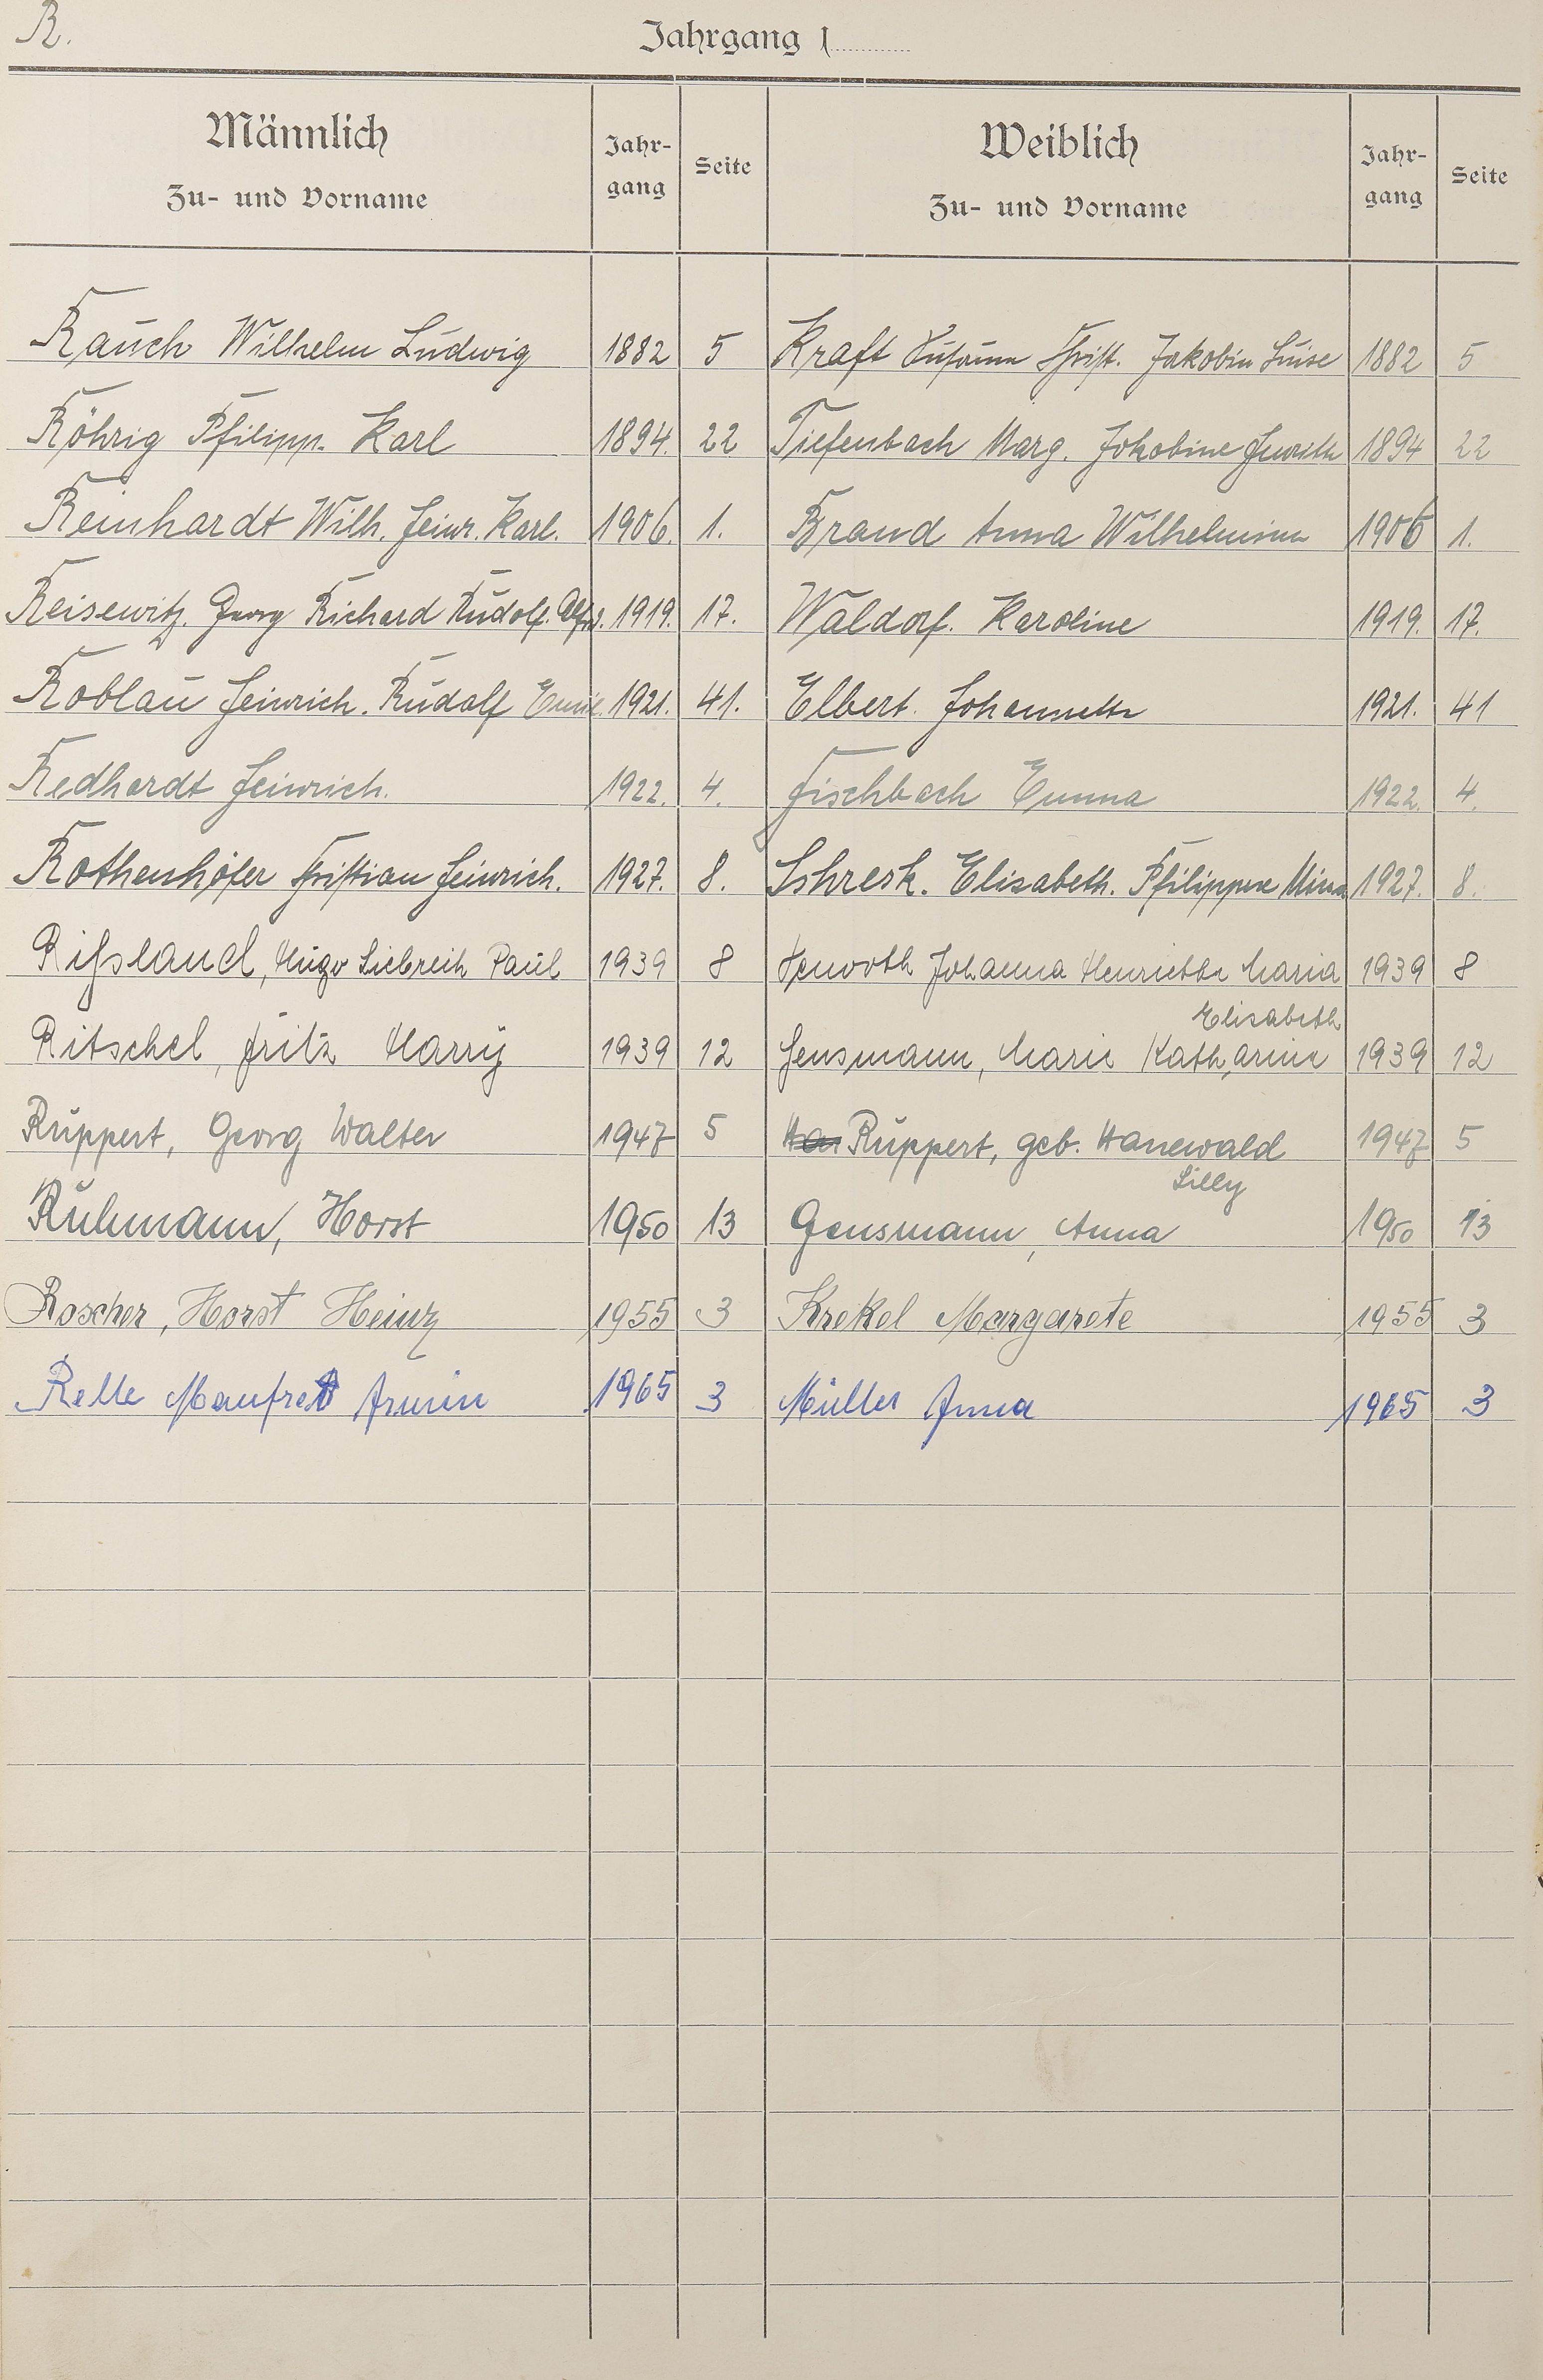 R.
Jahrgang 1
Männlich
Zu- und Vorname
Jahr-
gang
Seite
Weiblich
Zu- und Vorname
Jahr-
gang
Seite
Rauch Wilhelm Ludwig 1882 5 Kraft Susanna Christ. Jakobin Luise 1882 5
Röhrig Philipp. Karl 1894. 22 Tiefenbach Marg. Jakobine Henriette 1894 22
Reinhardt Wilh. Heinr. Karl. 1906. 1. Brand Anna Wilhelmina 1906 1.
Reisewitz. Georg Richard Rudolf. Alfr. 1919. 17. Waldorf. Karoline 1919. 17.
Koblau Heinrich. Rudolf Emil. 1921. 41. Elbert. Johannette 1921. 41
Redhardt Heinrich. 1922. 4. Fischbach Emma 1922. 4.
Rothenhöfer Christian Heinrich. 1927. 8. Schreck. Elisabeth. Philippine Mina 1927. 8.
Rißland, Hugo Liebreich Paul 1939 8 Johanna Henriette Maria 1939 8
Elisabeth
Ritschel, Fritz Harry 1939 12 Gensmann, Marie Katharine 1939 12
Ruppert, Georg Walter 1947 5 Han Ruppert, geb. Hanewald 1947 5
Lilly
Ruhmann, Horst 1950 13 Gensmann, Anna 1950 13
Roscher, Horst Heinz 1955 3 Krekel Margarete 1955 3
Relle Manfred Armin 1965 3 Müller Anna 1965 3